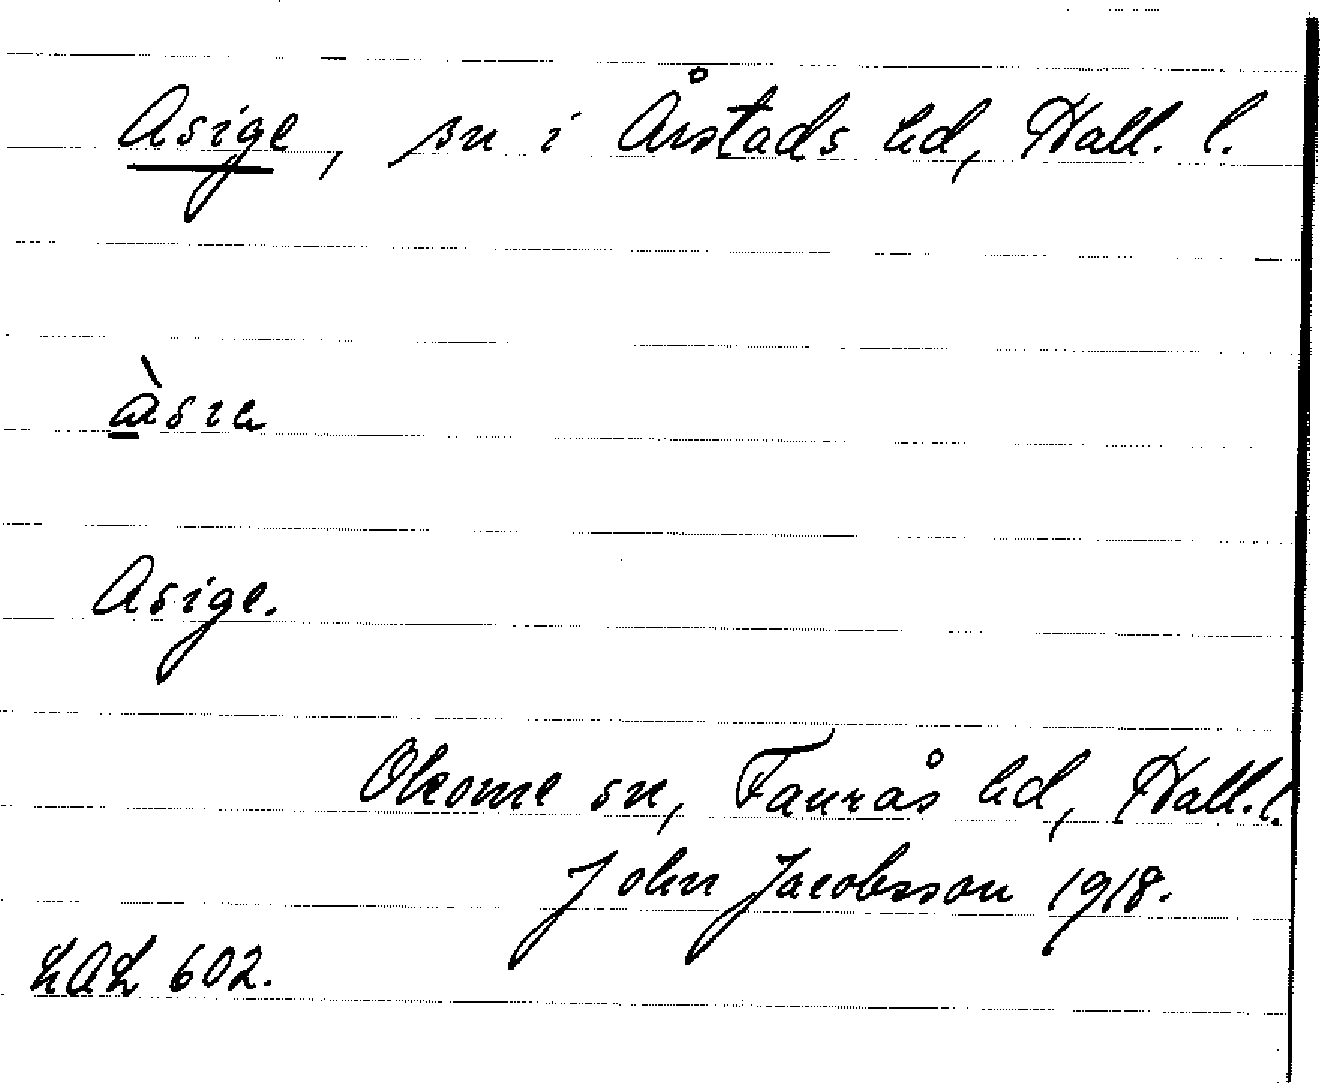 Asige, sn i Årstads hd, Hall. l.
Asige.
Okome sn, Faurås hd, Hall. l.
John Jacobsson 1918.
LAL 602.